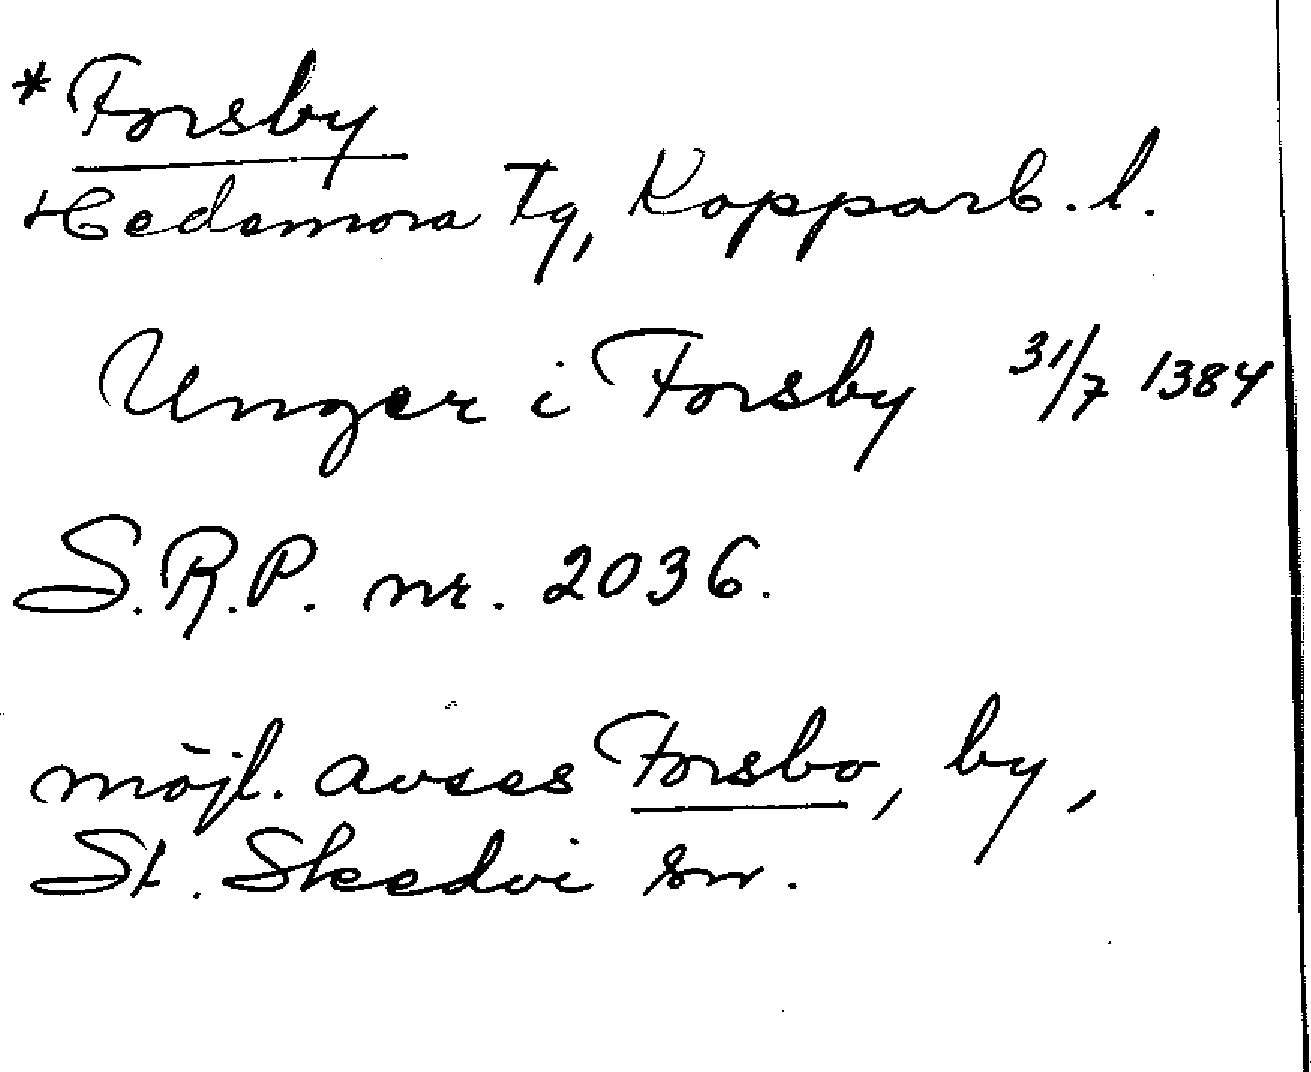 * Forsby
Hedemora Tg, Kopparb. l.
Unger i Forsby 31/7 1384
S.R.P. nr. 2036.
möjl. avses Forsbo, by,
St. Skedvi sn.